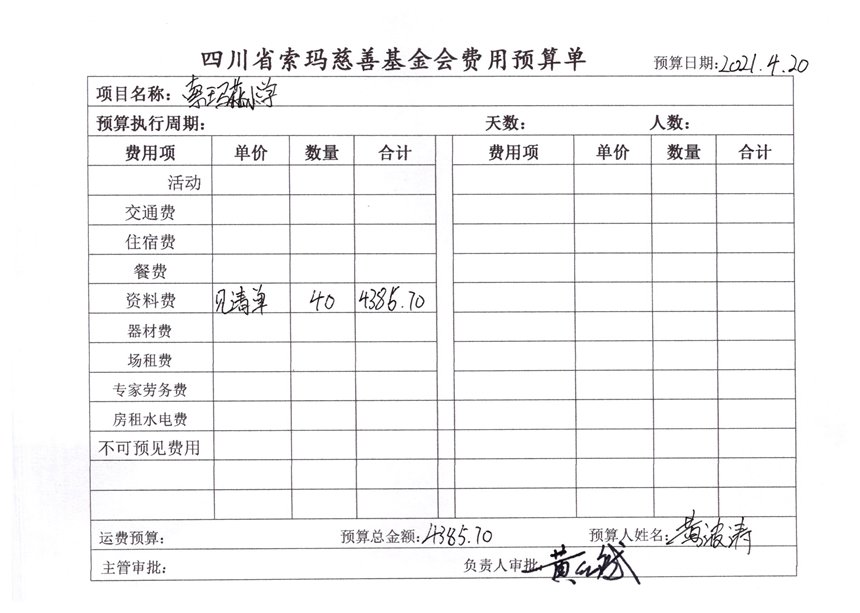 四川省索玛慈善基金会费用预算单
预算日期:2021.4.20
项目名称: 索玛花小学
预算执行周期: 天数: 人数:
费用项 单价 数量 合计 费用项 单价 数量 合计
活动
交通费
住宿费
餐费
资料费 见清单 40 4385.70
器材费
场租费
专家劳务费
房租水电费
不可预见费用
运费预算: 预算总金额: 4385.70 预算人姓名: 黄波涛
主管审批: 负责人审批: 黄